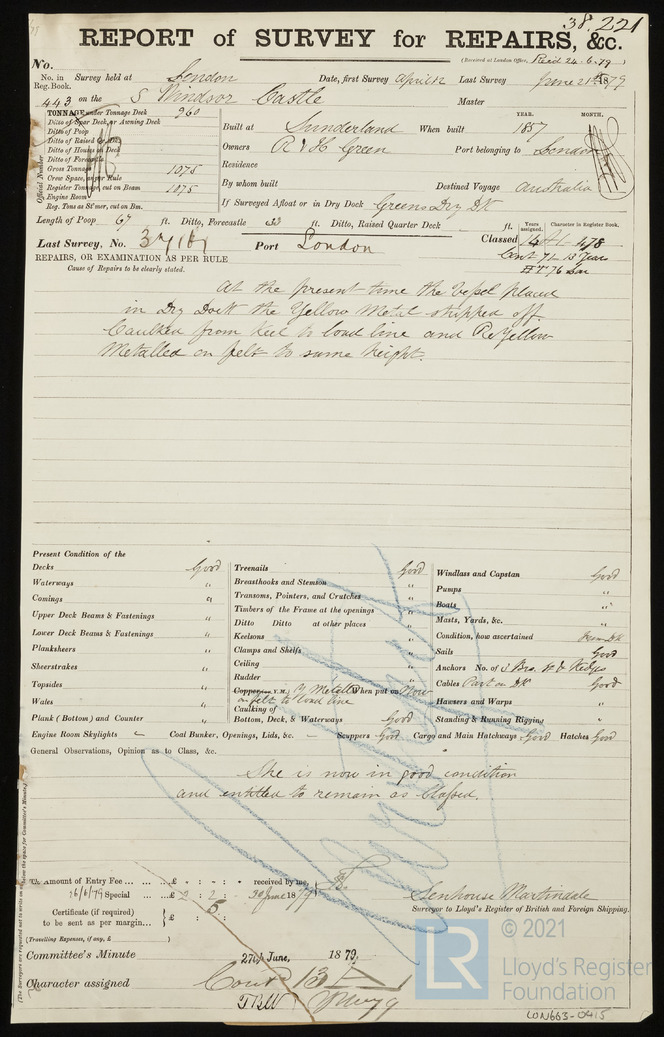 38,221
REPORT of SURVEY for REPAIRS, &c.
(Received at London Office, Rec'd 26.6.79)
No.
No. in Reg. Book. Survey held at London Date, first Survey April 12 Last Survey June 21st 1879
443 on the S Windsor Castle Master
TONNAGE under Tonnage Deck 960
Ditto of Spar Deck, or Awning Deck
Ditto of Poop
Ditto of Raised Qr. Dk
Ditto of Houses on Deck
Ditto of Forecastle
Gross Tonnage 1075
Crew Space, as per Rule
Register Tonnage, cut on Beam 1075
Engine Room
Reg. Tons as St'mer, cut on Bm.
Official Number
YEAR. MONTH.
Built at Sunderland When built 1857
Owners R & H Green Port belonging to London
Residence
By whom built Destined Voyage Australia
If Surveyed Afloat or in Dry Dock Greens Dry Dk
Length of Poop 67 ft. Ditto, Forecastle 33 ft. Ditto, Raised Quarter Deck ft.
Years assigned. Character in Register Book.
Last Survey, No. Port London Classed 14 A1 4,78
Cont 71 13 Years
REPAIRS, OR EXAMINATION AS PER RULE
Cause of Repairs to be clearly stated.
At the present time the Vessel placed
in Dry Dock the Yellow Metal stripped off
Caulked from Keel to load line and Re Yellow
Metalled on felt to same height.
Present Condition of the
Decks Good
Waterways "
Comings "
Upper Deck Beams & Fastenings "
Lower Deck Beams & Fastenings "
Planksheers "
Sheerstrakes "
Topsides "
Wales "
Plank (Bottom) and Counter "
Treenails Good
Breasthooks and Stemson "
Transoms, Pointers, and Crutches "
Timbers of the Frame at the openings "
Ditto Ditto at other places "
Keelsons "
Clamps and Shelfs "
Ceiling "
Rudder "
Copper (or Y.M.) Y Metalled When put on Now
on felt to load line
Caulking of
Bottom, Deck, & Waterways Good
Windlass and Capstan Good
Pumps "
Boats "
Masts, Yards, &c. "
Condition, how ascertained From Dk
Sails Good
Anchors No. of 3 Bro. St & Kedges
Cables Part on Dk Good
Hawsers and Warps "
Standing & Running Rigging "
Engine Room Skylights - Coal Bunker, Openings, Lids, &c. - Scuppers Good Cargo and Main Hatchways Good Hatches Good
General Observations, Opinion as to Class, &c.
She is now in good condition
and entitled to remain as Classed.
(The Surveyors are requested not to write on or below the space for Committee's Minute.)
The Amount of Entry Fee ... ... £ : : received by me,
26/6/79 Special ... £ 2 : 2 : 30 June 1879
Certificate (if required) to be sent as per margin... £ 5
(Travelling Expenses, if any, £ )
Senhouse Martindale
Surveyor to Lloyd's Register of British and Foreign Shipping.
Committee's Minute 27th June, 1879.
Character assigned Cont 13
© 2021
LR
Lloyd's Register
Foundation
LON663-0415